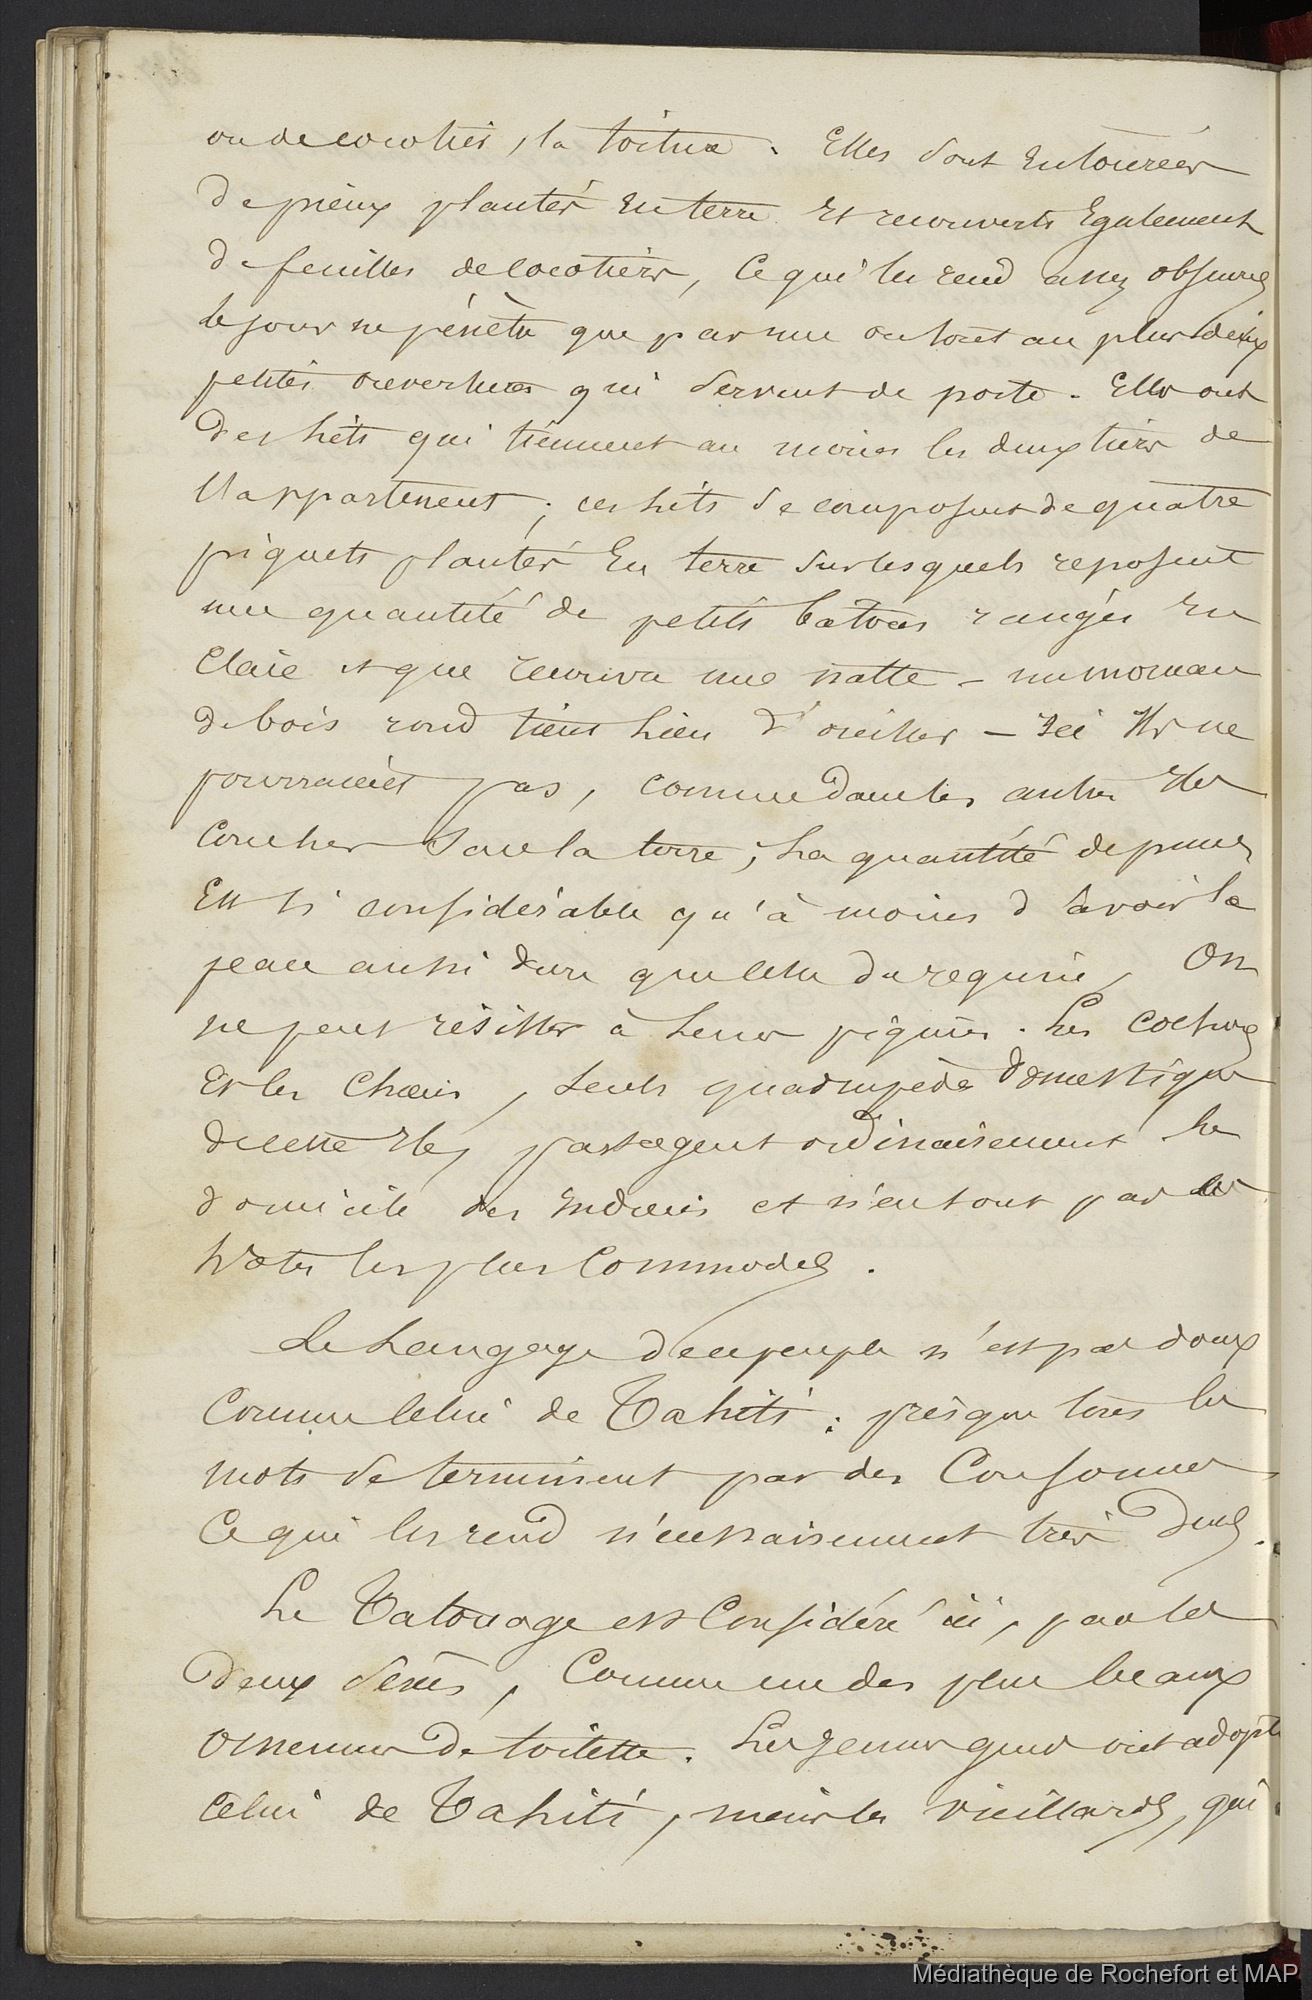 ou de cocotier, la toiture. Elles sont entourées
de pieux plantés en terre et recouverts également
de feuilles de cocotiers, ce qui les rend assez obscures
le jour ne pénètre que par une ou tout au plus deux
petites ouvertures qui servent de porte. Elles ont
des lits qui tiennent au moins les deux tiers de
l'appartement; ces lits se composent de quatre
piquets plantés en terre sur lesquels reposent
une quantité de petits bâtons rangés en
claie et que recouvre une natte - un morceau
de bois rond tient lieu d'oreiller - Ici ils ne
pourraient pas, comme dans les autres îles
coucher sur la terre; la quantité de puces
est si considérable qu'à moins d'avoir la
peau aussi dure que celle du requin, on
ne peut résister à leurs piqures. Les cochons
et les chiens, seuls quadrupèdes domestiques
de cette île, partagent ordinairement le
domicile des indiens et n'en sont pas les
hôtes les plus commodes.
Le langage de ce peuple n'est pas doux
comme celui de Tahiti: presque tous les
mots se terminent par des consonnes
ce qui les rend nécessairement très durs.
Le Tatouage est considéré ici, par les
deux sexes, comme un des plus beaux
ornemens de toilette. Les jeunes gens ont adopté
celui de Tahiti, mais les vieillards, qui
Médiathèque de Rochefort et MAP